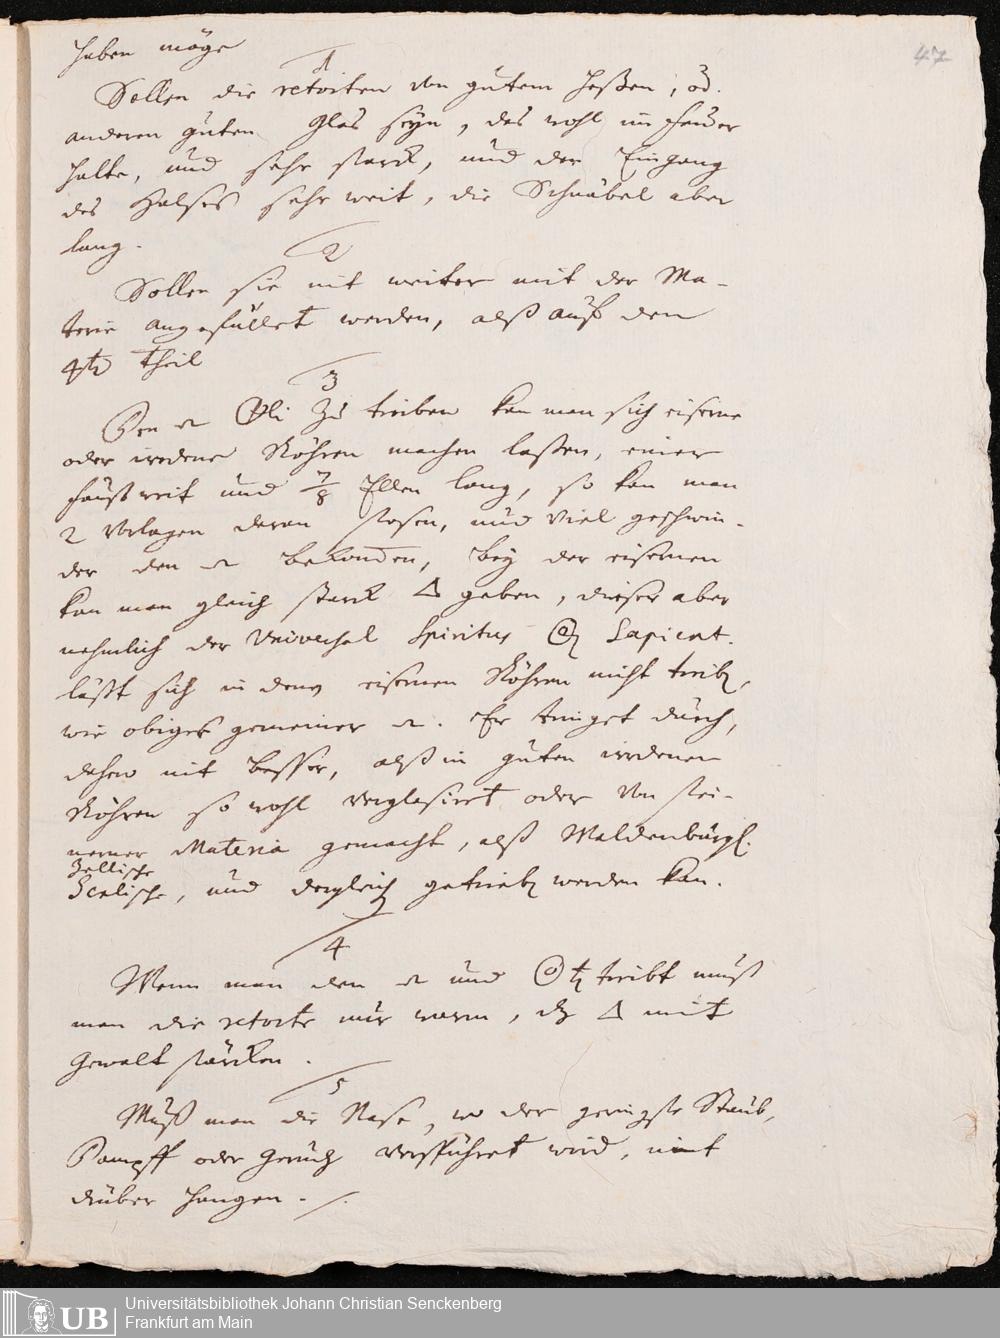 47
haben möge
1
Sollen die retorten von gutem Heßen, od.
anderen guten Glas seyn, das wohl im feuer
halte, und sehr starck, und der Eingang
des Halses sehr weit, die Schnäbel aber
lang.
2
Sollen sie nit weiter mit der Ma-
terie angefüllet werden, alß auf den
4ten Theil
3
Den Oli zu treiben kan man sich eiserne
oder irrdene Röhren machen laßen, einer
faust weit und 7/8 Ellen lang, so kan man
2 Vorlagen daran stosen, und viel geschwin-
der den bekommen, bey der eisernen
kan man gleich starck △ geben, dieser aber
nehmlich der Universal Spiritus Sapient.
läßt sich in denen eisernen Röhren nicht treib,
wie obiger gemeiner. Er tringet durch,
dahero nit besser, alß in guten irrdenen
Röhren so wohl verglasiret oder von stei-
nerner Materia gemacht, alß Waldenburgl.
Zellische
, und dergleich getrieb werden kan.
4
Wenn man den und treibt muß
man die retorte nur warm, d △ mit
Gewalt stärcken.
5
Muß man die Nase, wo der geringste Staub,
Dampff oder Geruch verspühret wird, nicht
drüber hangen.
UB
Universitätsbibliothek Johann Christian Senckenberg
Frankfurt am Main